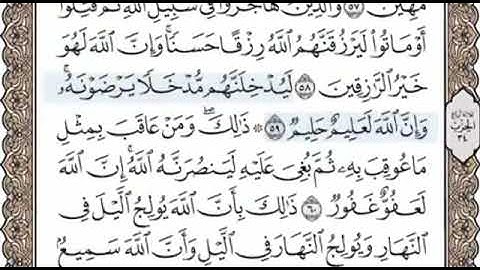 مُّهِينٌ ٥٧ وَالَّذِينَ هَاجَرُوا فِي سَبِيلِ اللَّهِ ثُمَّ قُتِلُوا
أَوْ مَاتُوا لَيَرْزُقَنَّهُمُ اللَّهُ رِزْقًا حَسَنًا ۚ وَإِنَّ اللَّهَ لَهُوَ
خَيْرُ الرَّازِقِينَ ٥٨ لَيُدْخِلَنَّهُم مُّدْخَلًا يَرْضَوْنَهُ ۗ
وَإِنَّ اللَّهَ لَعَلِيمٌ حَلِيمٌ ٥٩ ۞ ذَٰلِكَ ۖ وَمَنْ عَاقَبَ بِمِثْلِ
مَا عُوقِبَ بِهِ ثُمَّ بُغِيَ عَلَيْهِ لَيَنصُرَنَّهُ اللَّهُ ۗ إِنَّ اللَّهَ
لَعَفُوٌّ غَفُورٌ ٦٠ ذَٰلِكَ بِأَنَّ اللَّهَ يُولِجُ اللَّيْلَ فِي
النَّهَارِ وَيُولِجُ النَّهَارَ فِي اللَّيْلِ وَأَنَّ اللَّهَ سَمِيعٌ
الحزب
٣٤